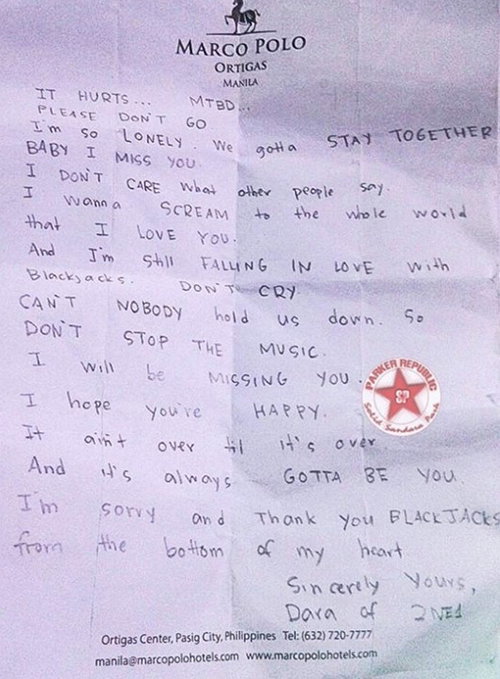 MARCO POLO
ORTIGAS
MANILA
IT HURTS... MTBD...
PLEASE DON'T GO
I'm so LONELY. We gotta STAY TOGETHER
BABY I MISS YOU.
I DON'T CARE what other people say.
I wanna SCREAM to the whole world
that I LOVE YOU.
And I'm still FALLING IN LOVE with
Blackjacks. DON'T CRY.
CAN'T NOBODY hold us down. So
DON'T STOP THE MUSIC.
I will be MISSING YOU.
I hope you're HAPPY.
It ain't over til it's over.
And it's always GOTTA BE YOU.
I'm sorry and Thank you BLACKJACKS
from the bottom of my heart
Sincerely Yours,
Dara of 2NE1
PARKER REPUBLIC
SP
Solid Sandara Park
Ortigas Center, Pasig City, Philippines Tel: (632) 720-7777
manila@marcopolohotels.com www.marcopolohotels.com